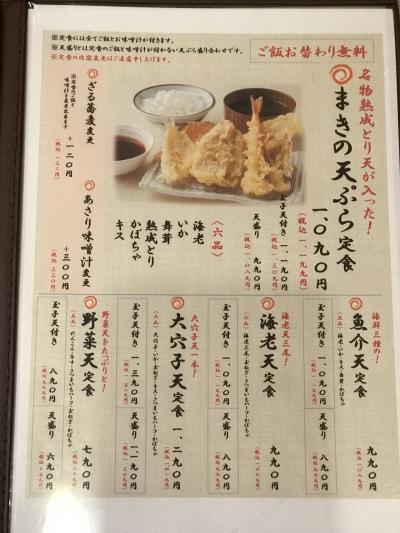 ※定食には全てご飯とお味噌汁が付きます。
※天盛りとは定食のご飯と味噌汁が付かない天ぷら盛り合わせです。
※定食の内容変更はご遠慮申し上げます。
ご飯お替わり無料
名物熟成とり天が入った！
まきの天ぷら定食
一、〇九〇円
（税込 一、一九九円）
玉子天付き 一、一九〇円
（税込 一、三〇九円）
天盛り 九九〇円
（税込 一、〇八九円）
〈六品〉
海老
いか
舞茸
熟成とり
かぼちゃ
キス
ざる蕎麦変更
＋一二〇円
（税込 一三二円）
※定食のご飯と
味噌汁を変更出来ます
あさり味噌汁変更
＋三〇〇円
（税込 三三〇円）
海鮮三種の！
魚介天定食
九九〇円
（税込 一、〇八九円）
玉子天付き 一、〇九〇円
天盛り 八九〇円
海老天三尾！
海老天定食
九九〇円
（税込 一、〇八九円）
玉子天付き 一、〇九〇円
天盛り 八九〇円
大穴子天一本！
大穴子天定食
一、二九〇円
玉子天付き 一、三九〇円
天盛り 一、一九〇円
野菜天をたっぷりと！
野菜天定食
七九〇円
玉子天付き 八九〇円
天盛り 六九〇円